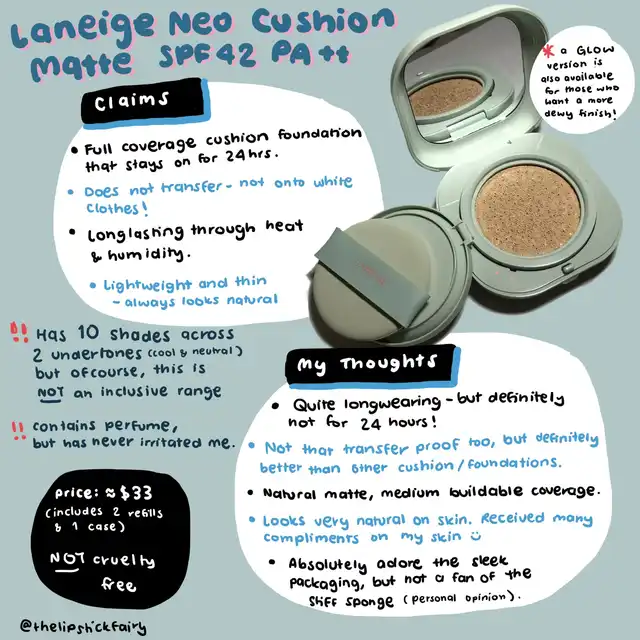 Laneige Neo Cushion
Matte SPF42 PA++
* a GLOW
version is
also available
for those who
want a more
dewy finish!
Claims
• Full coverage cushion foundation
that stays on for 24hrs.
• Does not transfer - not onto white
clothes!
• Longlasting through heat
& humidity.
• Lightweight and thin
- always looks natural
!! Has 10 shades across
2 undertones (cool & neutral)
but ofcourse, this is
NOT an inclusive range
!! contains perfume,
but has never irritated me.
Price: ≈ $33
(includes 2 refills
& 1 case)
NOT cruelty
free
My Thoughts
• Quite longwearing - but definitely
not for 24 hours!
• Not that transfer proof too, but definitely
better than other cushion/foundations.
• Natural matte, medium buildable coverage.
• Looks very natural on skin. Received many
compliments on my skin ☺
• Absolutely adore the sleek
packaging, but not a fan of the
stiff sponge (personal opinion).
@thelipstickfairy